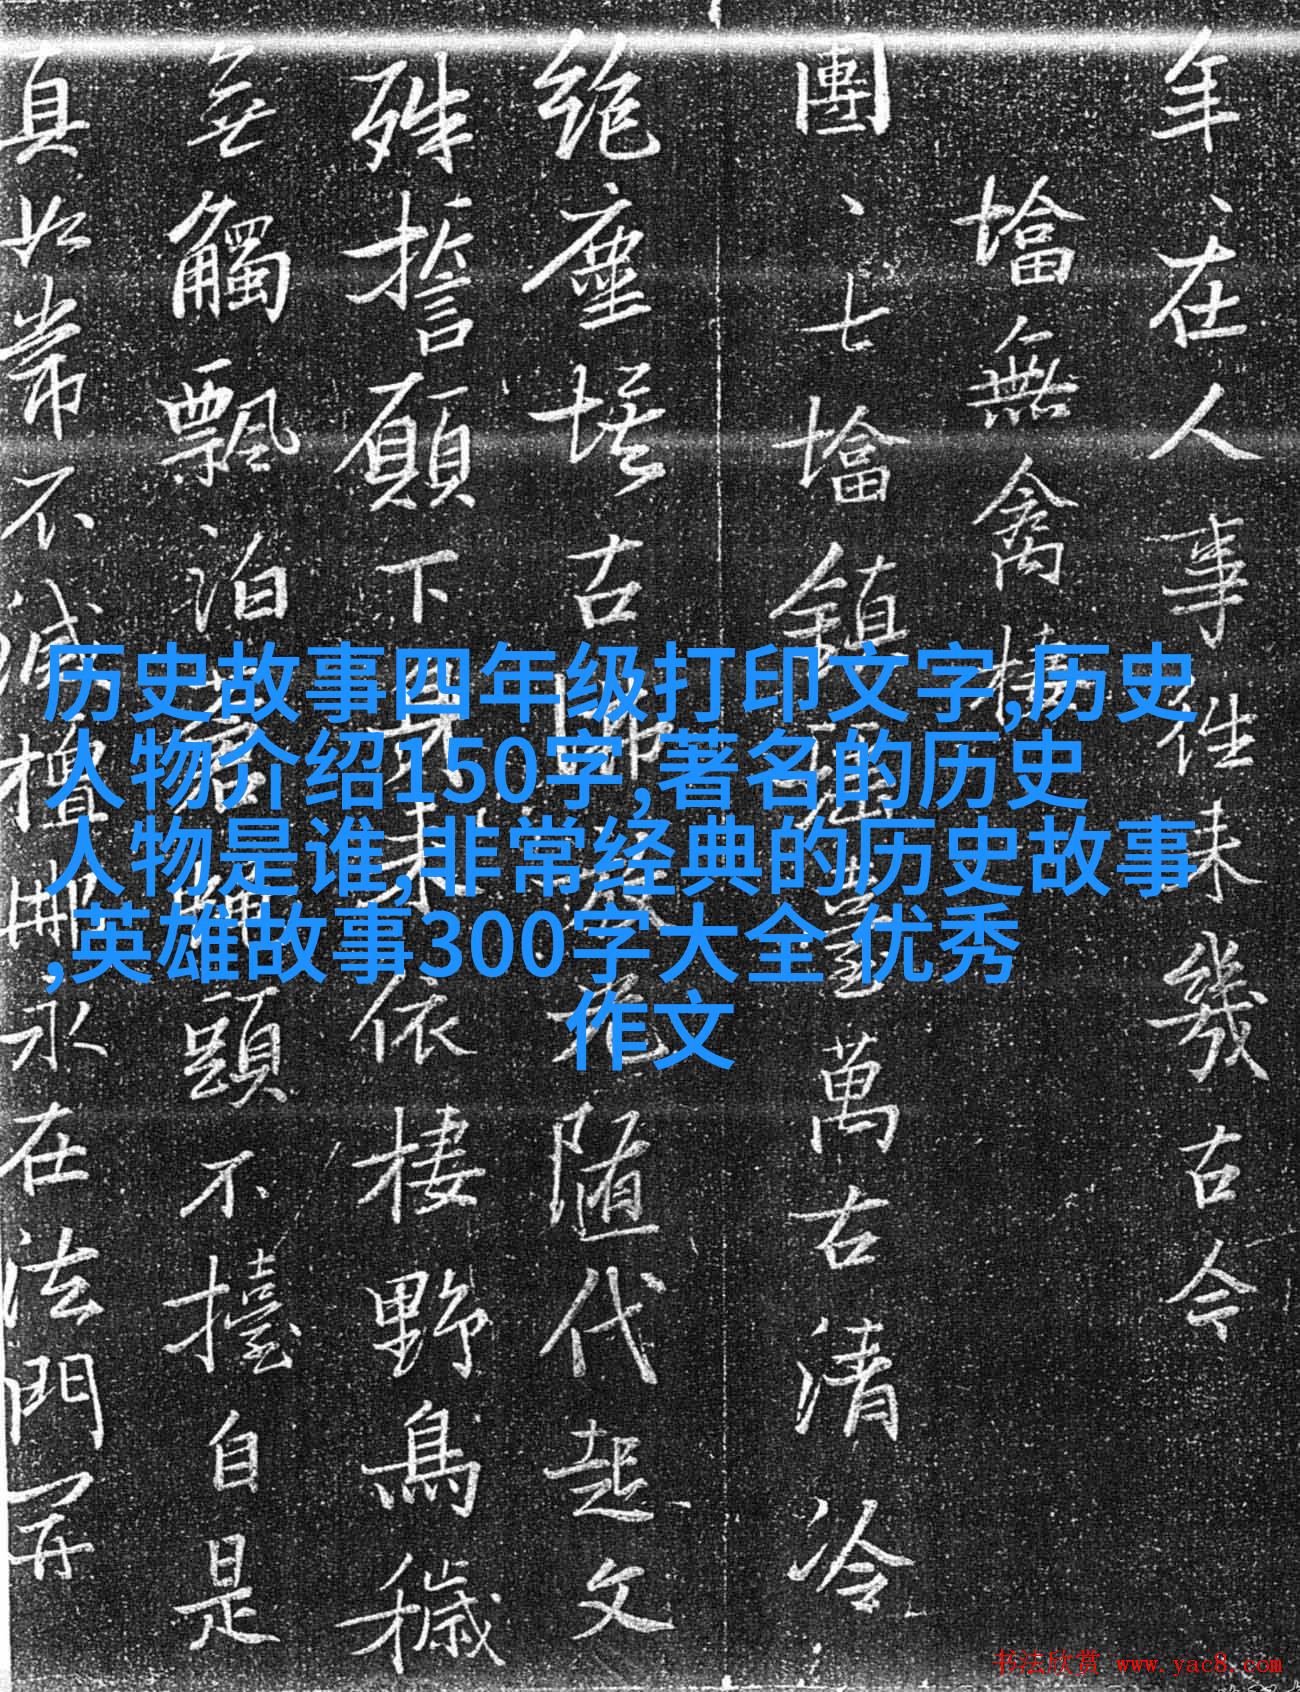 年、在人事往未幾古今
墖無禽棲
團、七墖鎮臺萬古清冷
絕塵埃古隨代起文
殊誓願下依棲野鳥穢
無觸飄泊頭不擡自是
真如常不滅檀那永在法門開
历史故事四年级打印文字,历史
人物介绍150字,著名的历史
人物是谁,非常经典的历史故事
,英雄故事300字大全 优秀
作文
书法欣赏 www.yac8.com